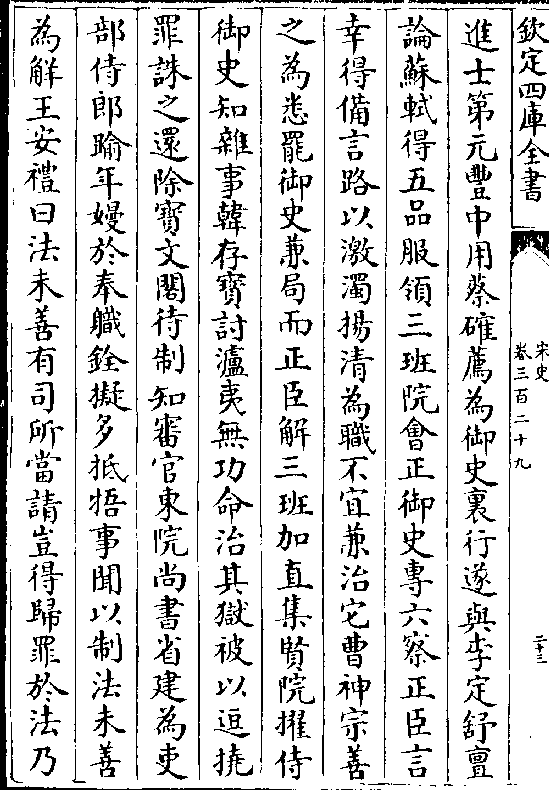 欽定四庫全書
宋史
卷三百二十九
二十三
進士第元豐中用蔡確薦為御史裏行遂與李定舒亶
論蘇軾得五品服領三班院會正御史專六察正臣言
幸得備言路以激濁揚清為職不宜兼治它曹神宗善
之為悉罷御史兼局而正臣解三班加直集賢院擢侍
御史知雜事韓存寶討瀘夷無功命治其獄被以逗撓
罪誅之還除寶文閣待制知審官東院尚書省建為吏
部侍郎踰年嫚於奉職銓擬多抵牾事聞以制法未善
為解王安禮曰法未善有司所當請豈得歸罪於法乃